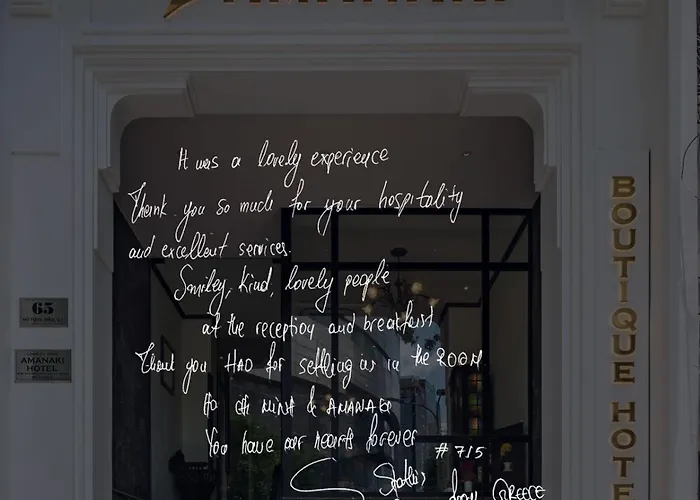 It was a lovely experience
Thank you so much for your hospitality
and excellent services.
Smiley, kind, lovely people
at the reception and breakfast
Thank you HAO for settling us in the ROOM
HO CHI MINH & AMANAKI
You have our hearts forever
# 715
from GREECE
65
AMANAKI
HOTEL
BOUTIQUE HOTE